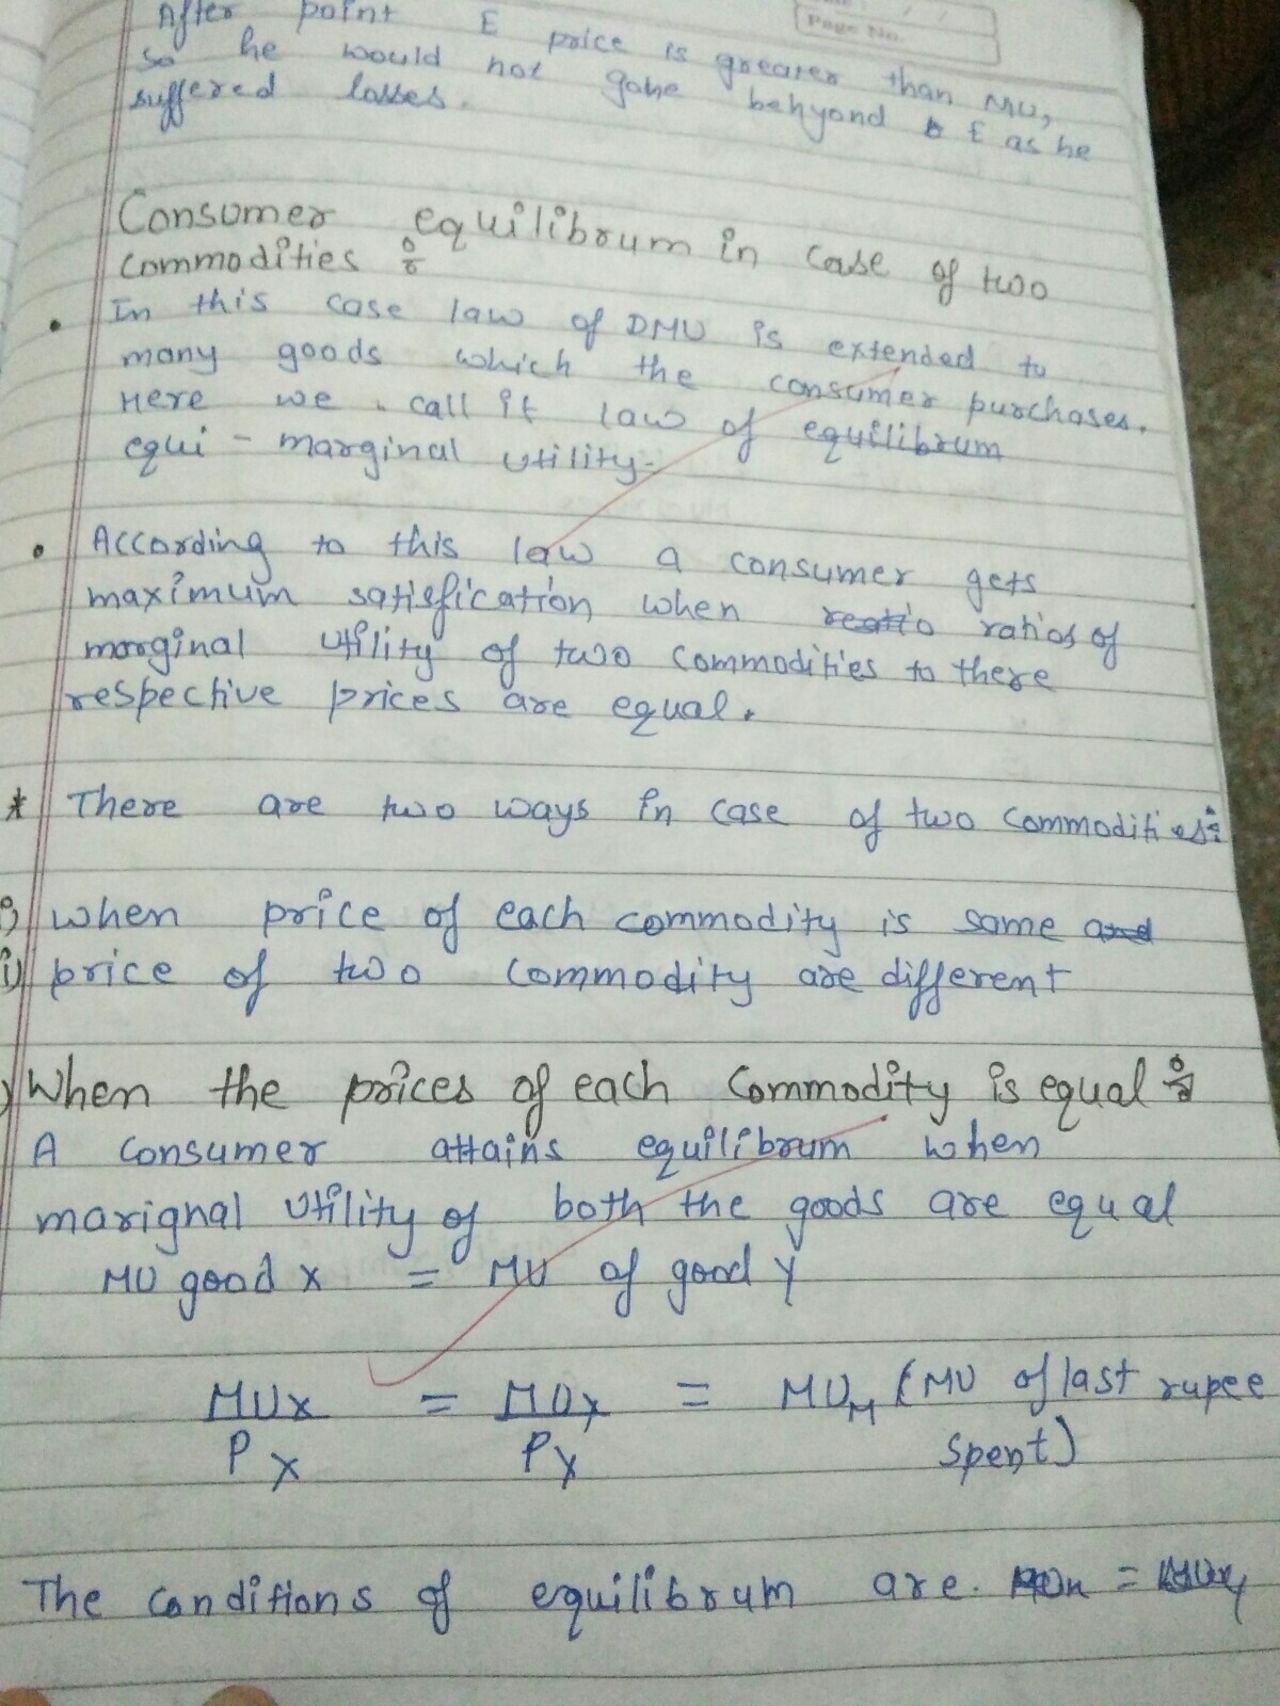 Page No.
After point E price is greater than MU,
so he would not gone behyond E as he
suffered losses.
Consumer equilibrum in case of two
commodities :
• In this case law of DMU is extended to
many goods which the consumer purchases.
Here we call it law of equilibrum
equi-marginal utility.
• According to this law a consumer gets
maximum satisfication when reatio ratios of
marginal utility of two commodities to there
respective prices are equal.
* There are two ways in case of two commodities:
i) when price of each commodity is same and
ii) price of two commodity are different
When the prices of each commodity is equal :
A consumer attains equilibrum when
marignal utility of both the goods are equal
MU good x = MU of good y
MUx = MUy = MUM (MU of last rupee
Px Py spent)
The conditions of equilibrum are.